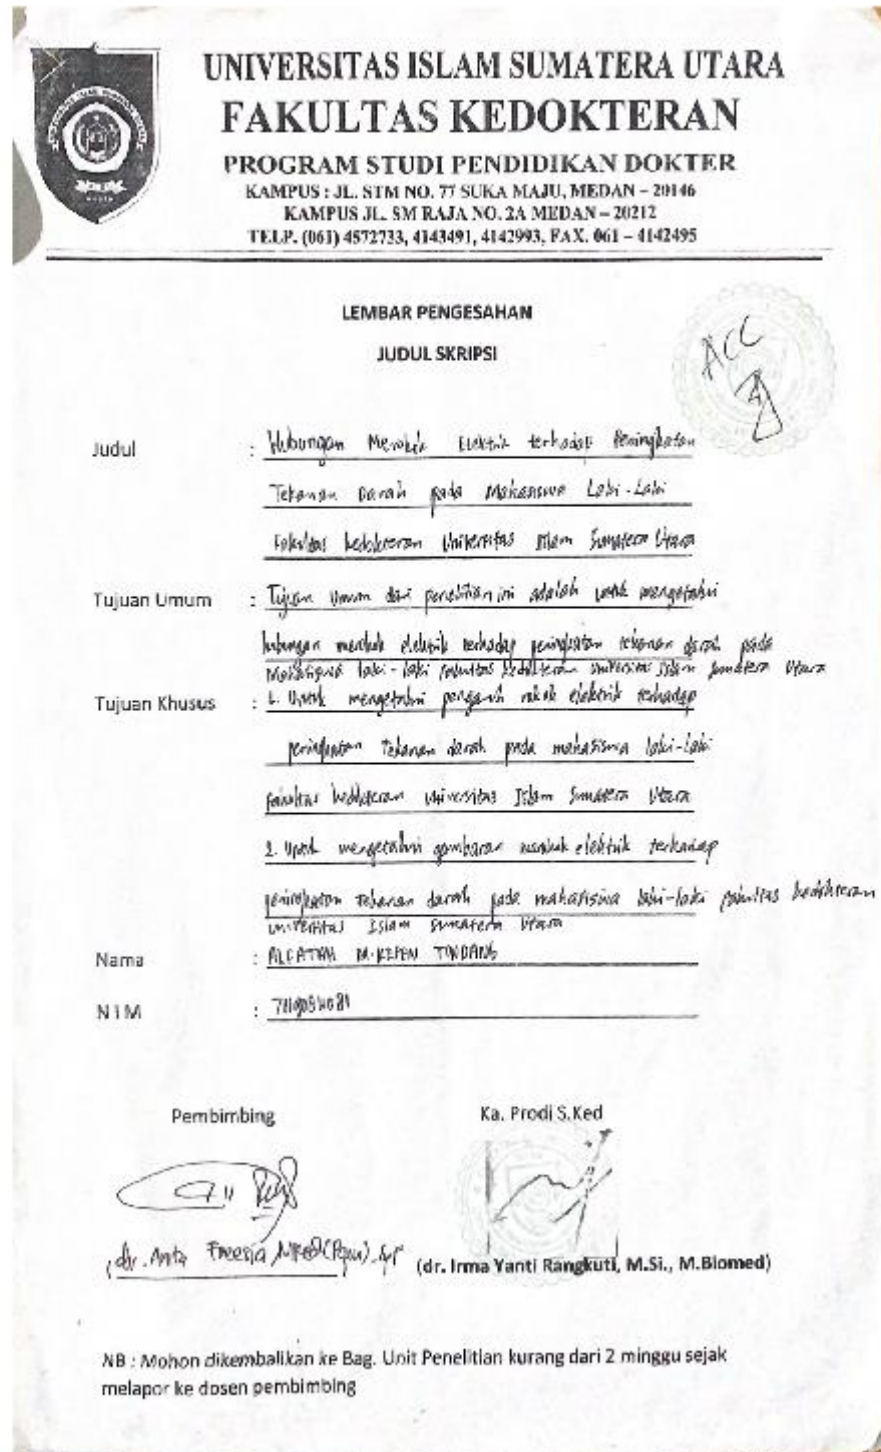 UNIVERSITAS ISLAM SUMATERA UTARA
FAKULTAS KEDOKTERAN
PROGRAM STUDI PENDIDIKAN DOKTER
KAMPUS : JL. STM NO. 77 SUKA MAJU, MEDAN – 20146
KAMPUS JL. SM RAJA NO. 2A MEDAN – 20212
TELP. (061) 4572733, 4143491, 4142993, FAX. 061 – 4142495
LEMBAR PENGESAHAN
JUDUL SKRIPSI
ACC
Judul : Hubungan Merokok Elektrik terhadap Peningkatan
Tekanan Darah pada Mahasiswa Laki-Laki
Fakultas kedokteran Universitas Islam Sumatera Utara
Tujuan Umum : Tujuan Umum dari penelitian ini adalah untuk mengetahui
hubungan merokok elektrik terhadap peningkatan tekanan darah pada
Mahasiswa laki-laki Fakultas kedokteran universitas Islam Sumatera Utara
Tujuan Khusus : 1. Untuk mengetahui pengaruh rokok elektrik terhadap
peningkatan Tekanan darah pada mahasiswa laki-laki
fakultas kedokteran universitas Islam Sumatera Utara
2. Untuk mengetahui gambaran merokok elektrik terhadap
peningkatan tekanan darah pada mahasiswa laki-laki fakultas kedokteran
universitas Islam Sumatera Utara
Nama :
NIM :
Pembimbing
Ka. Prodi S.Ked
(dr. Anta Freesia
(dr. Irma Yanti Rangkuti, M.Si., M.Biomed)
NB : Mohon dikembalikan ke Bag. Unit Penelitian kurang dari 2 minggu sejak
melapor ke dosen pembimbing